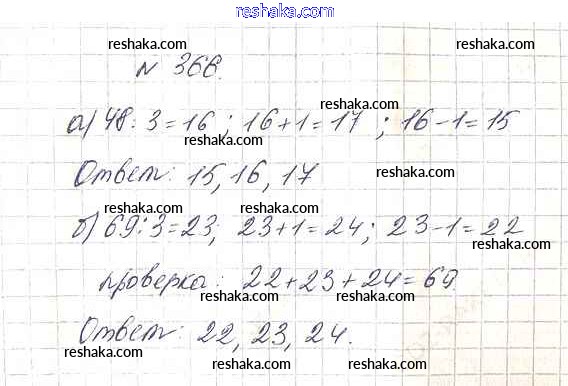 reshaka.ru
reshaka.com
reshaka.com
№ 366.
reshaka.com
reshaka.com
а) 48 : 3 = 16 ; 16 + 1 = 17 ; 16 - 1 = 15
reshaka.com
reshaka.com
Ответ: 15, 16, 17
reshaka.com
reshaka.com
б) 69 : 3 = 23; 23 + 1 = 24; 23 - 1 = 22
reshaka.com
проверка: 22 + 23 + 24 = 69
reshaka.com
reshaka.com
Ответ: 22, 23, 24.
reshaka.com
reshaka.com
reshaka.ru